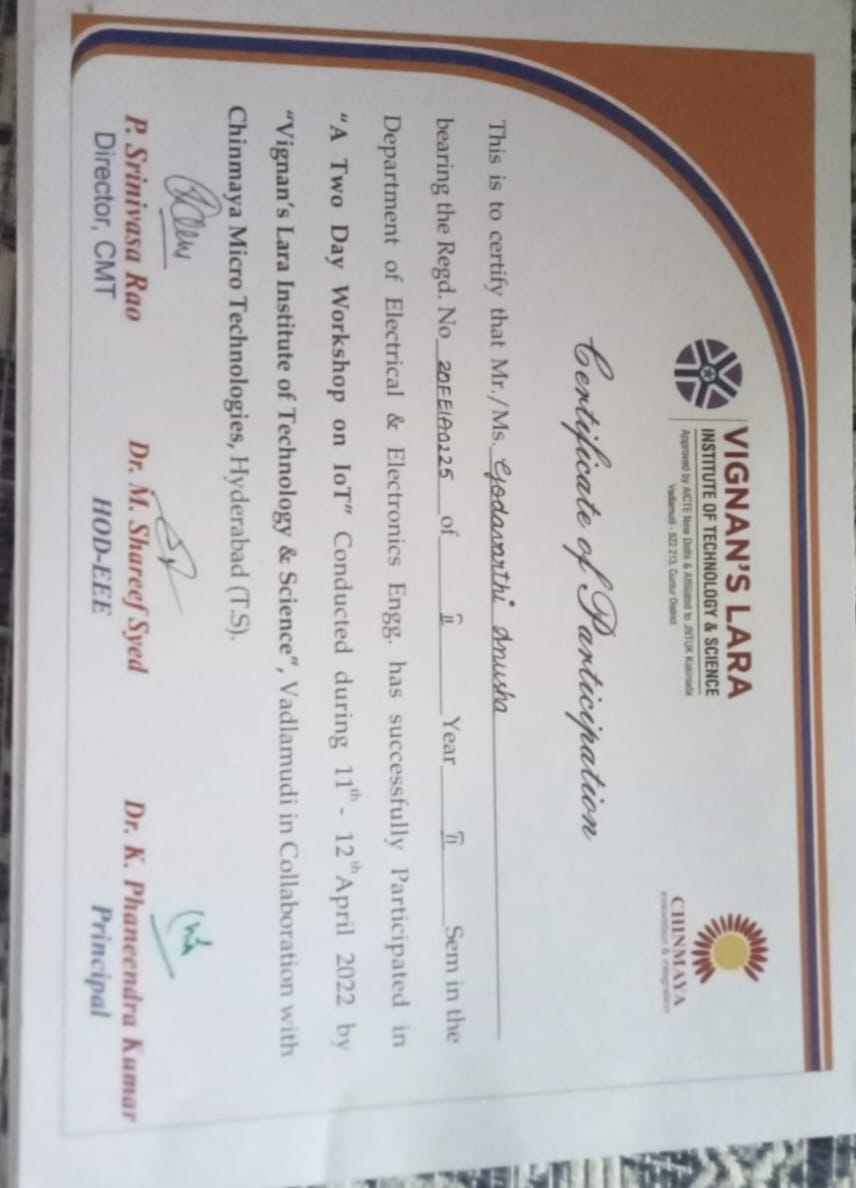 VIGNAN'S LARA
INSTITUTE OF TECHNOLOGY & SCIENCE
Approved by AICTE New Delhi & Affiliated to JNTUK Kakinada
Vadlamudi - 522 213, Guntur District
CHINMAYA
Certificate of Participation
This is to certify that Mr./Ms. Godavarthi Anusha
bearing the Regd. No 20FE1A0225 of II Year II Sem in the
Department of Electrical & Electronics Engg. has successfully Participated in
"A Two Day Workshop on IoT" Conducted during 11th - 12th April 2022 by
"Vignan's Lara Institute of Technology & Science", Vadlamudi in Collaboration with
Chinmaya Micro Technologies, Hyderabad (T.S).
P. Srinivasa Rao
Director, CMT
Dr. M. Shareef Syed
HOD-EEE
Dr. K. Phaneendra Kumar
Principal